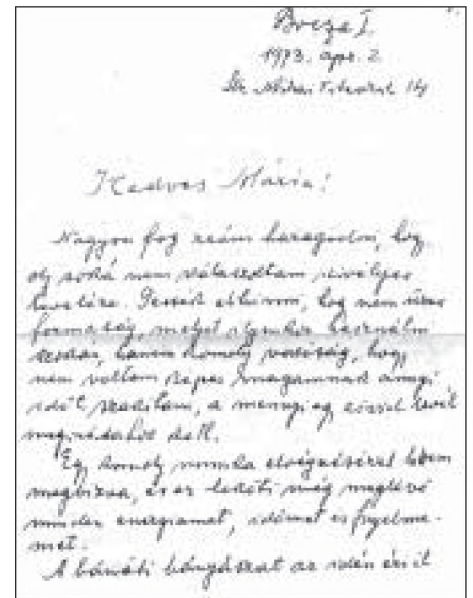 Bocşa I.
1973. apr. 2.
Str. Mihai 14
Kedves Mária!
Nagyon fog reám haragudni, hog
oly soká nem válaszoltam szívélyes
levelére. Tessék elhinni, hog nem üres
formaság, melyet ilyenkor használni
szokás, hanem komoly valóság, hogy
nem voltam képes magamnak annyi
időt szakítani, a mennyi eg rövid levél
megírásához kell.
Eg komoly munka elvégzésével
megbízva, és ez leköti még meglévő
minden energiámat, időmet és figyelme-
met.
A bánáti bányászat az idén